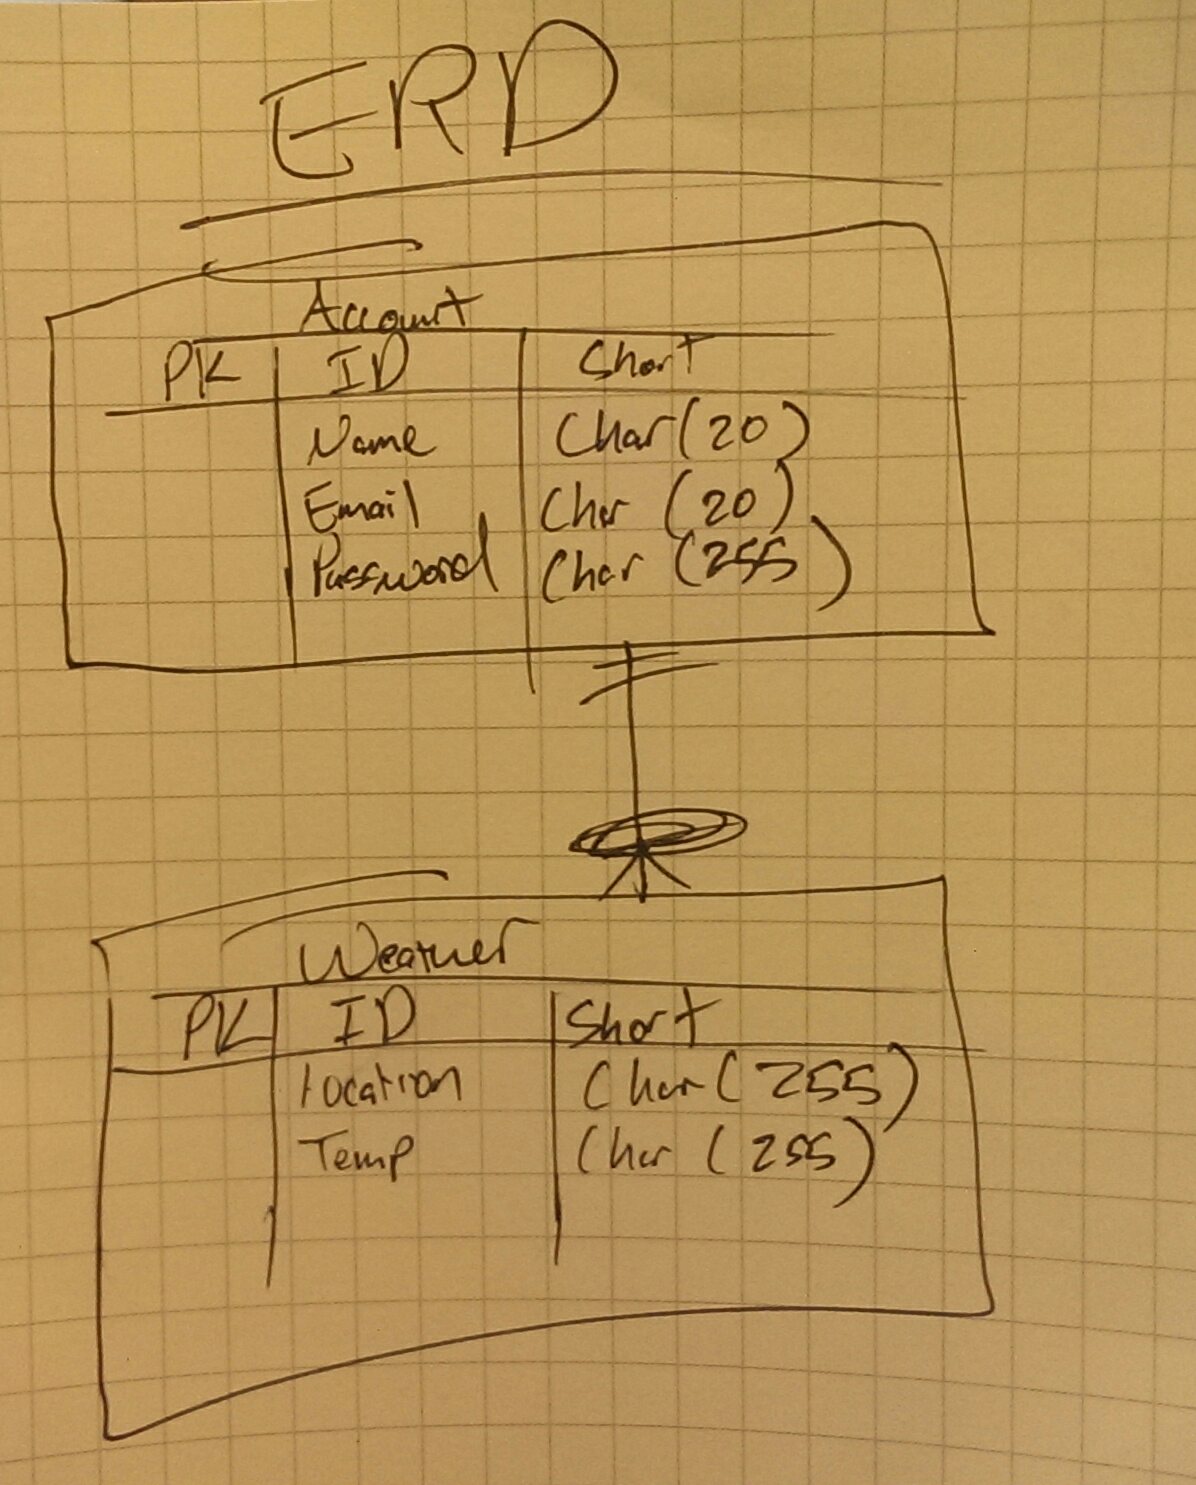 ERD
Account
PK ID Short
Name Char(20)
Email Char (20)
Password Char (255)
Weather
PK ID Short
Location Char(255)
Temp Char (255)